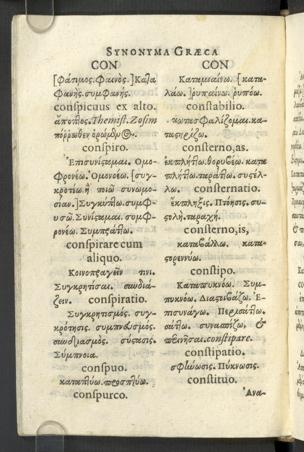 SYNONYMA GRÆCA
CON
[Φάτιμος. Φανὸς.] Κατα
φανής. συμφανής.
conspicuus ex alto.
ἄποπτος. Themist. Zosim
πόῤῥωθεν
conspiro.
Ἐπισυνίσταμαι. Ομο
φρονέω. Ὁμονοέω. [συγ
κροτέω. ἢ ποιῶ συνωμο
σίαν.] συμφ
Συνίσταμαι. συμφ
ρονέω. Συμπνέω.
conspirare cum
aliquo.
Κοινοπραγεῖν τινι.
Συγκρητίσαι.
conspiratio.
Συγκρητισμός. συγ
κρότησις.
σύστασις.
Σύμπνοια.
conspuo.
καταπτύω. προσπτύω.
conspurco.
CON
Καταμιαίνω. [κατα
ῥυπαίνω. ῥυπόω.
constabilio.
κατασφαλίζομαι. κα-
ταστηρίζω.
consterno, as.
ἐκπλήττω. θορυβέω. κατα
πλήττω. ταράττω. συστέλ-
λω. consternatio.
ἔκπληξις. Πτόησις. συ-
στολή. ταραχή.
consterno, is,
καταβάλλω. κατα-
στρωννύω.
constipo.
Καταπυκνόω. Συμ-
πυκνόω. Διαστοιβάζω. Ἐ-
πισυνάγω.
&
constipare.
constipatio.
Πύκνωσις.
constituo.
Ἀνα-